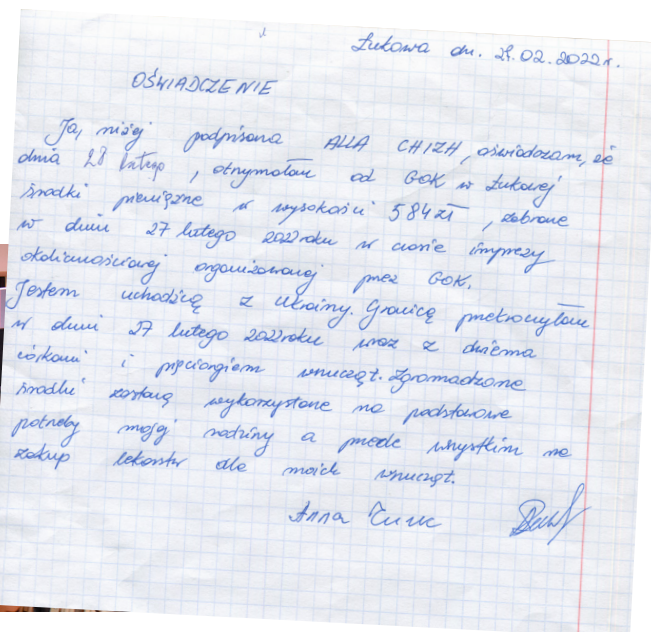 Łukowa dn. 28.02.2022r.
OŚWIADCZENIE
Ja, niżej podpisana ALLA CHIZH, oświadczam, że
dnia 28 lutego, otrzymałam od GOK w Łukowej
środki pieniężne w wysokości 584 zł, zebrane
w dniu 27 lutego 2022 roku w czasie imprezy
okolicznościowej organizowanej przez GOK.
Jestem uchodźcą z Ukrainy. Granicę przekroczyłam
w dniu 27 lutego 2022 roku wraz z dwiema
córkami i pięciorgiem wnucząt. Zgromadzone
środki zostaną wykorzystane na podstawowe
potrzeby mojej rodziny a przede wszystkim na
zakup lekarstw dla moich wnucząt.
Anna